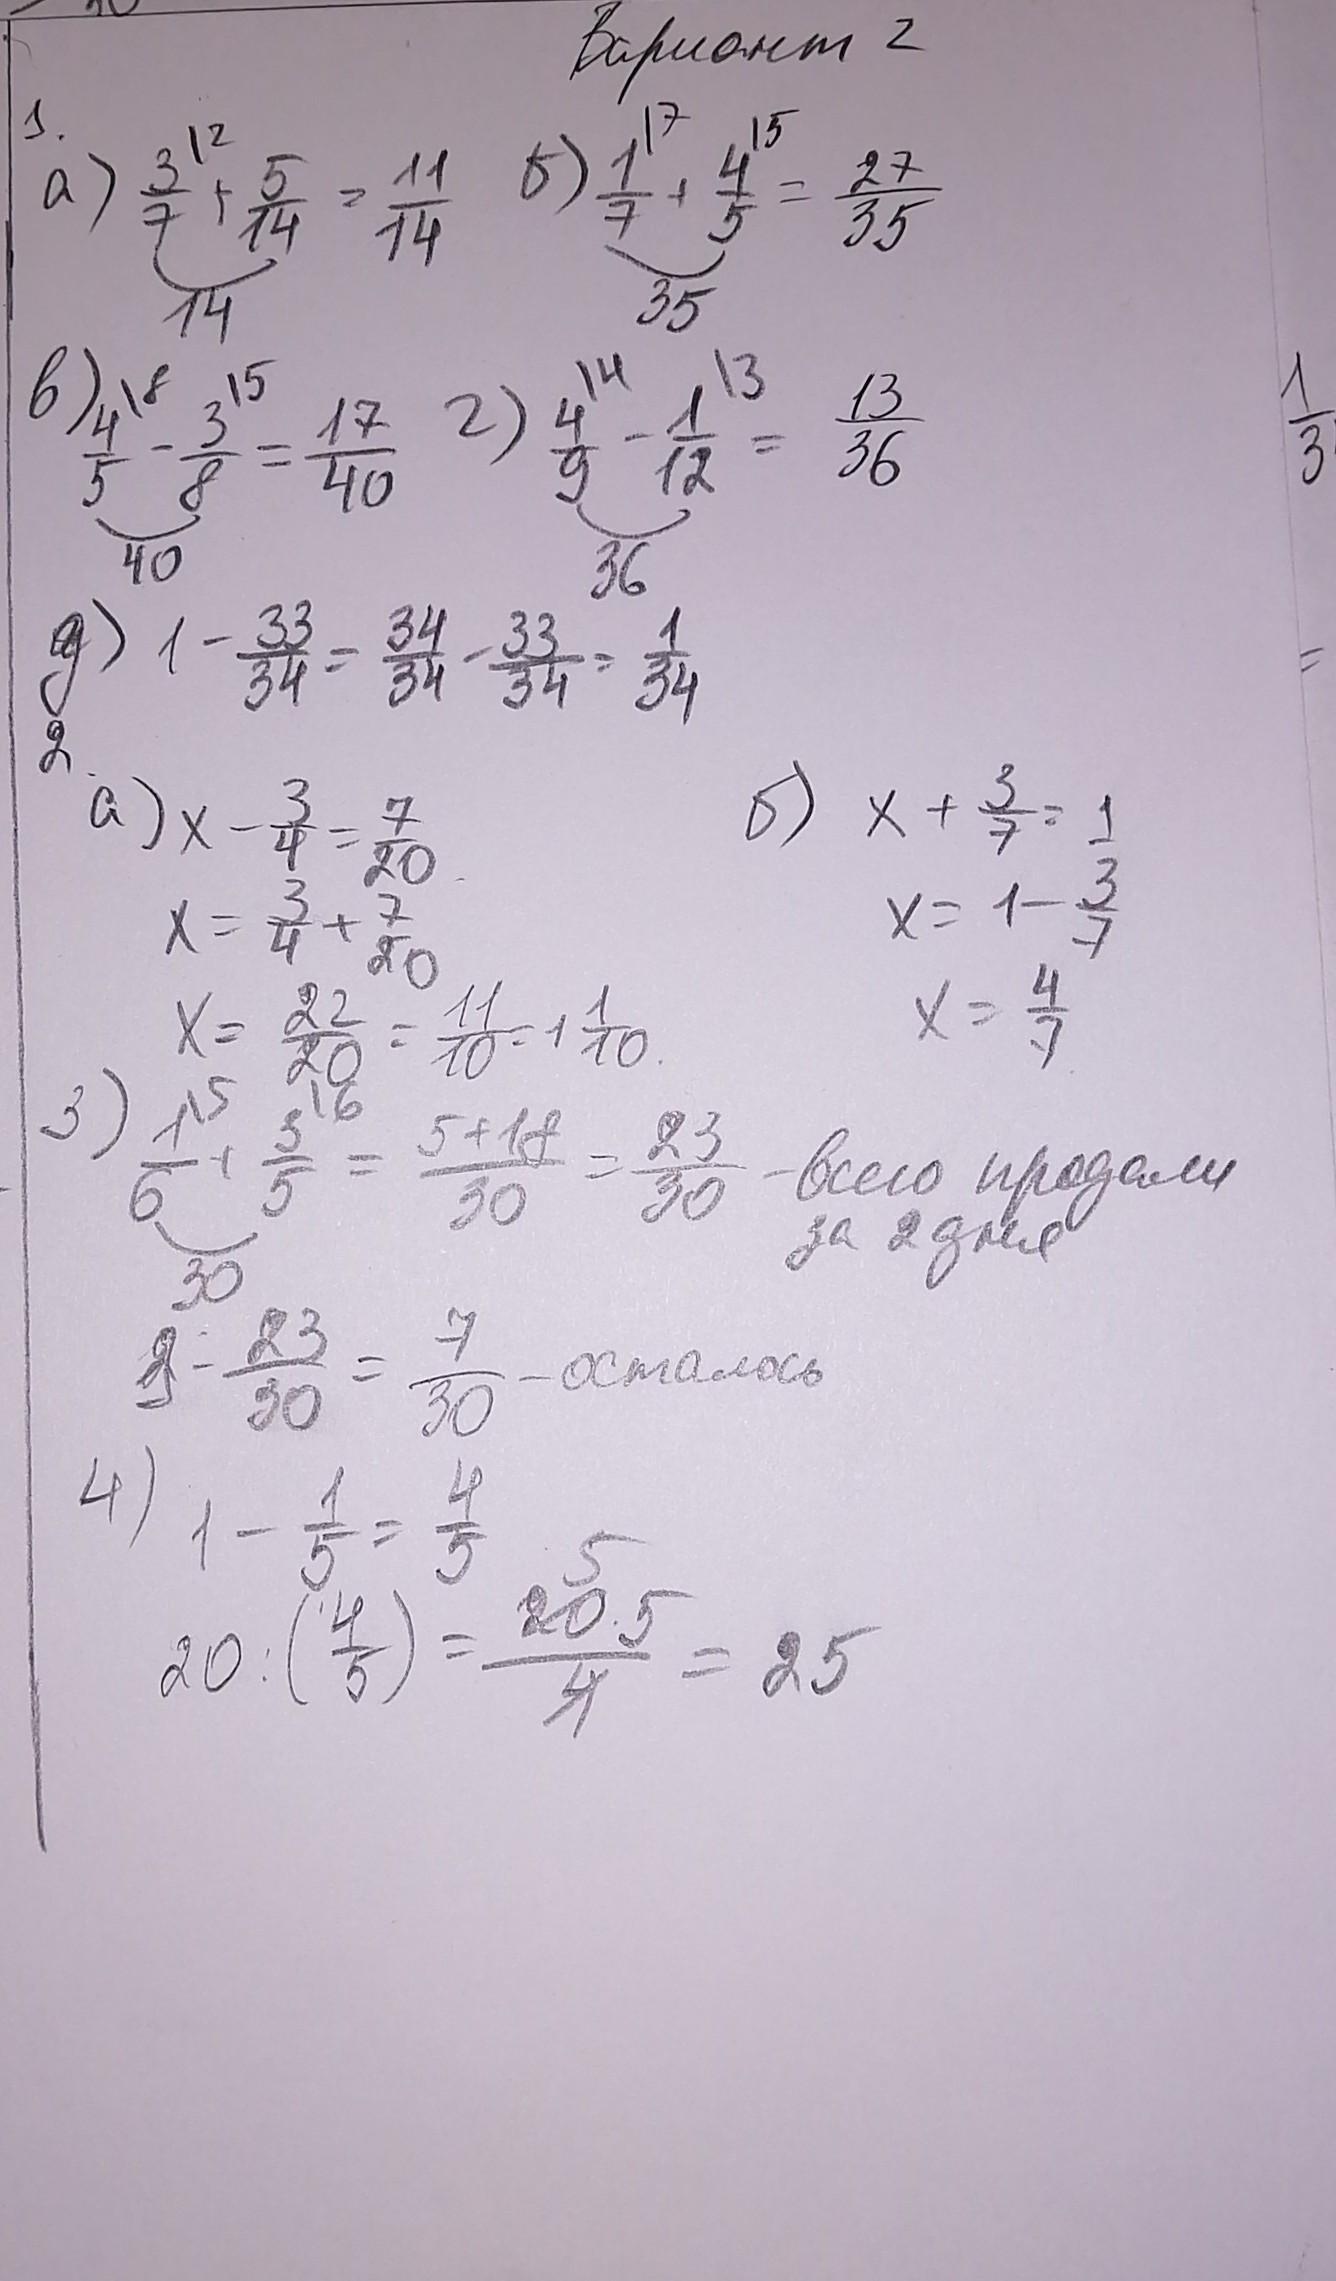 Вариант 2
1.
а) 3/7 \2 + 5/14 = 11/14 б) 1/7 \7 + 4/5 \5 = 27/35
14 35
в) 4/5 \8 - 3/8 \5 = 17/40 г) 4/9 \4 - 1/12 \3 = 13/36
40 36
д) 1 - 33/34 = 34/34 - 33/34 = 1/34
2.
а) х - 3/4 = 7/20 б) х + 3/7 = 1
х = 3/4 + 7/20 х = 1 - 3/7
х = 22/20 = 11/10 = 1 1/10. х = 4/7
3) 1/6 \5 + 3/5 \6 = 5+18/30 = 23/30 - всего продали
за 2 дня
30
1 - 23/30 = 7/30 - осталось
4) 1 - 1/5 = 4/5
5
20 : (4/5) = 20·5/4 = 25